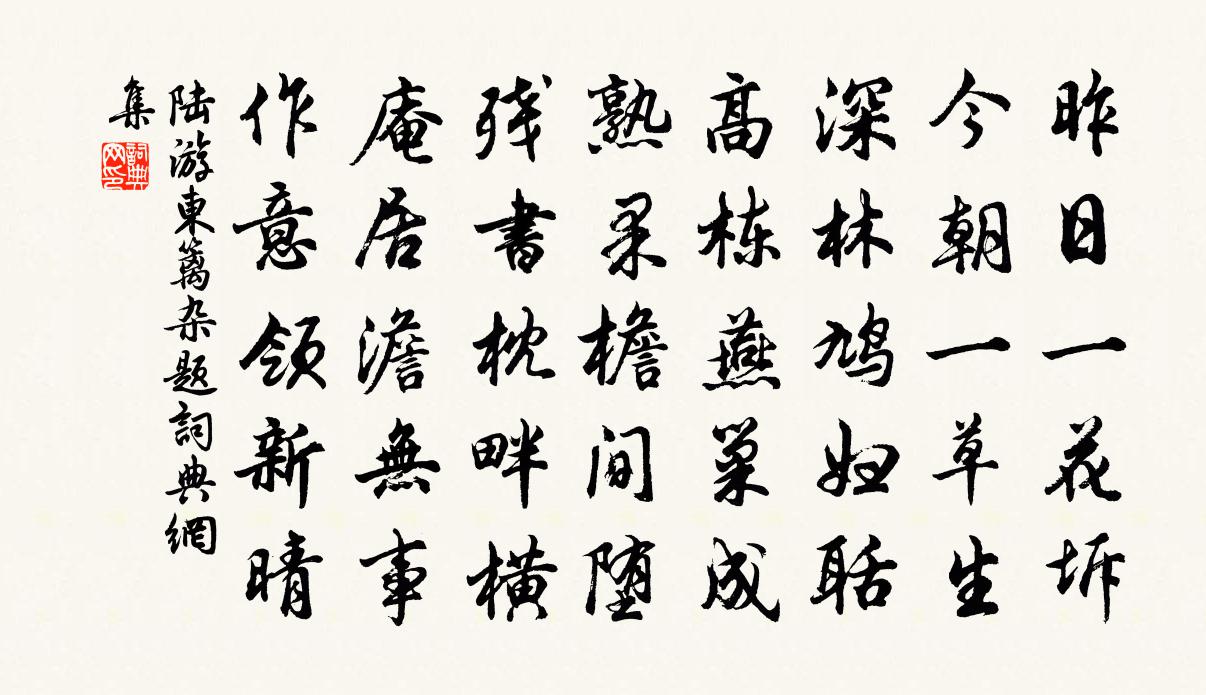 昨日一花坼
今朝一草生
深林鸠妇聒
高栋燕巢成
熟果檐间堕
残書枕畔横
庵居澹無事
作意领新晴
陆游東篱杂题詞典網
集
詞典网印